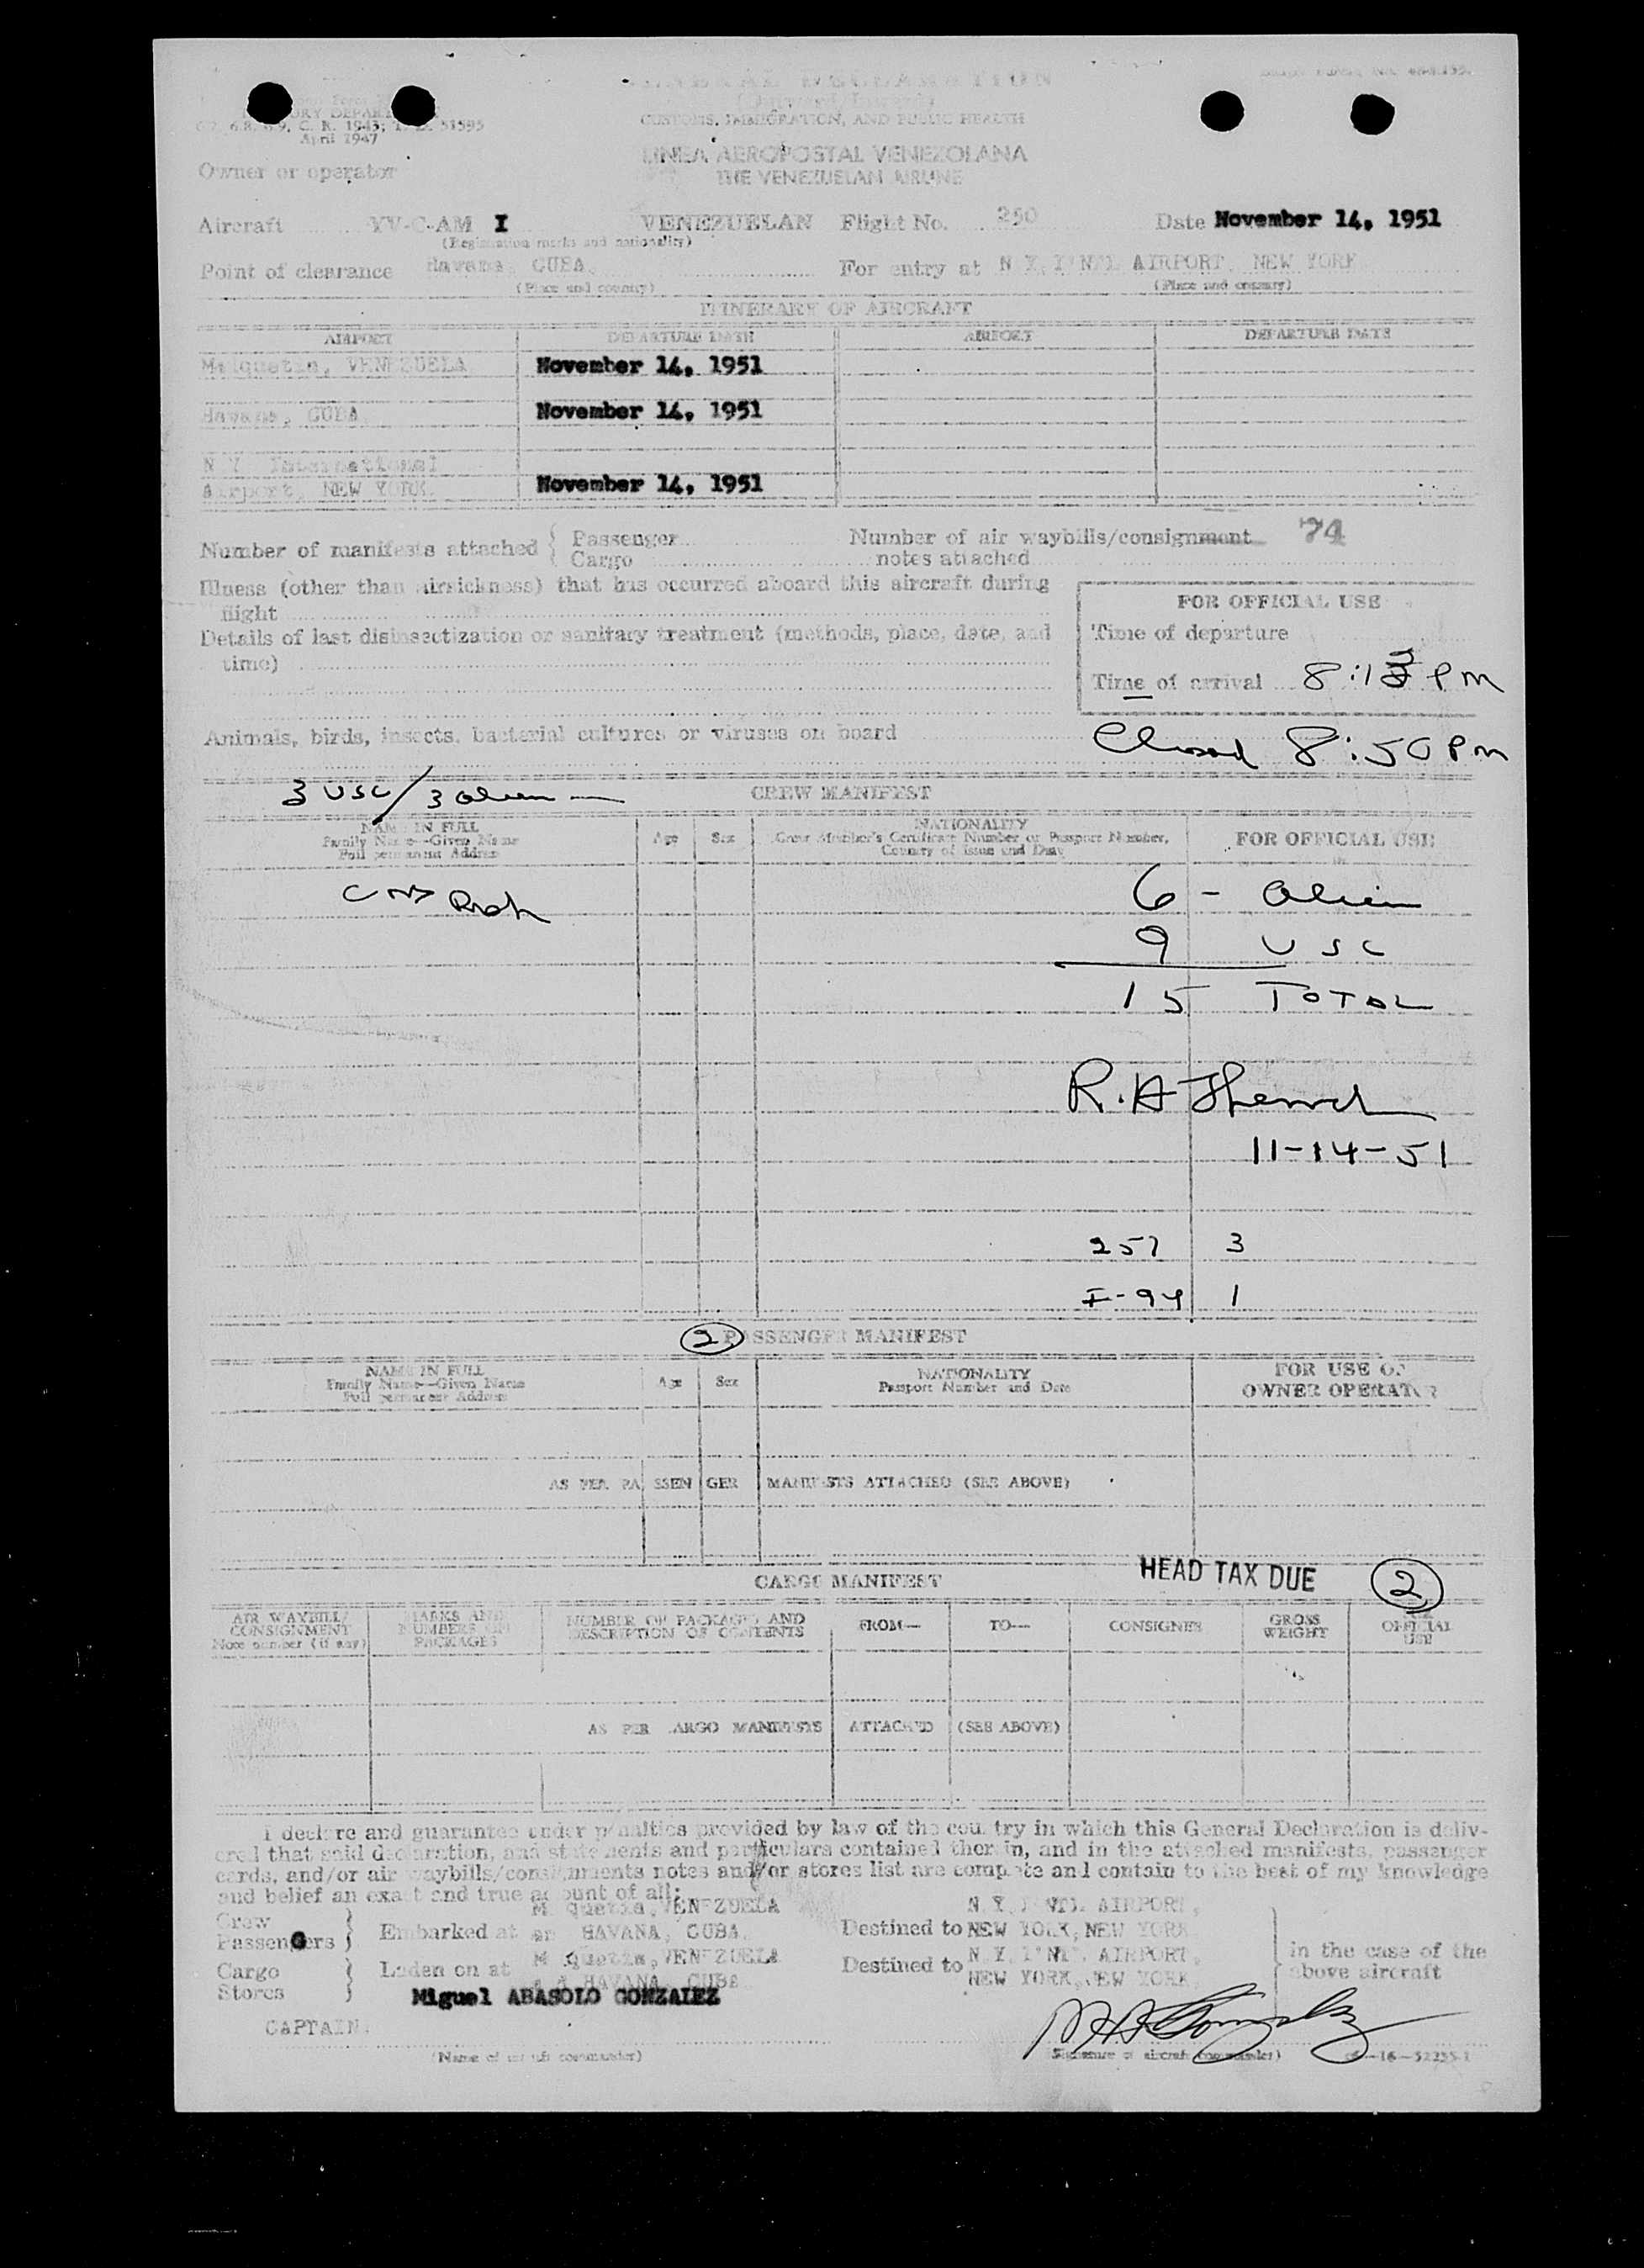 GENERAL DECLARATION
(Outward/Inward)
CUSTOMS, IMMIGRATION, AND PUBLIC HEALTH
6.8, 6.9, C. R. 1943; T. D. 51595
April 1947
LINEA AEROPOSTAL VENEZOLANA
THE VENEZUELAN AIRLINE
Owner or operator
Aircraft YV-C-AM I VENEZUELAN Flight No. 250 Date November 14, 1951
(Registration marks and nationality)
Point of clearance Havana, CUBA. For entry at N Y. I'NT'L AIRPORT, NEW YORK
(Place and country) (Place and country)
ITINERARY OF AIRCRAFT
AIRPORT DEPARTURE DATE AIRPORT DEPARTURE DATE
Maiquetia, VENEZUELA November 14, 1951
Havana, CUBA November 14, 1951
N Y International
Airport, NEW YORK. November 14, 1951
Number of manifests attached { Passenger Number of air waybills/consignment 74
Cargo notes attached
Illness (other than airsickness) that has occurred aboard this aircraft during
flight
FOR OFFICIAL USE
Details of last disinsectization or sanitary treatment (methods, place, date, and
time)
Time of departure
Time of arrival 8:13 PM
Animals, birds, insects, bacterial cultures or viruses on board
Closed 8:50 PM
3 USC/3 alien
CREW MANIFEST
NAME IN FULL
Family Name—Given Name
Full permanent Address
Age Sex
NATIONALITY
Crew Member's Certificate Number or Passport Number,
Country of Issue and Date
FOR OFFICIAL USE
6 - Alien
9 USC
15 TOTAL
R. A.
11-14-51
257 3
I-94 1
2 PASSENGER MANIFEST
NAME IN FULL
Family Name—Given Name
Full permanent Address
Age Sex
NATIONALITY
Passport Number and Date
FOR USE OF
OWNER OPERATOR
AS PER PASSENGER MANIFESTS ATTACHED (SEE ABOVE)
HEAD TAX DUE 2
CARGO MANIFEST
AIR WAYBILL/
CONSIGNMENT
Note number (if any)
MARKS AND
NUMBERS ON
PACKAGES
NUMBER OF PACKAGES AND
DESCRIPTION OF CONTENTS
FROM— TO— CONSIGNEE
GROSS
WEIGHT
OFFICIAL
USE
AS PER CARGO MANIFESTS ATTACHED (SEE ABOVE)
I declare and guarantee under penalties provided by law of the country in which this General Declaration is deliv-
ered that said declaration, and statements and particulars contained therein, and in the attached manifests, passenger
cards, and/or air waybills/consignments notes and/or stores list are complete and contain to the best of my knowledge
and belief an exact and true account of all:
Crew
Passengers
Embarked at Maiquetia, VENEZUELA
HAVANA, CUBA.
Destined to N. Y. I'NT'L AIRPORT,
NEW YORK, NEW YORK
Cargo
Stores
Laden on at Maiquetia, VENEZUELA
HAVANA, CUBA
Destined to N. Y. I'NT'L AIRPORT,
NEW YORK, NEW YORK
in the case of the
above aircraft
Miguel ABASOLO GONZALEZ
CAPTAIN.
(Name of aircraft commander) (Signature of aircraft commander)